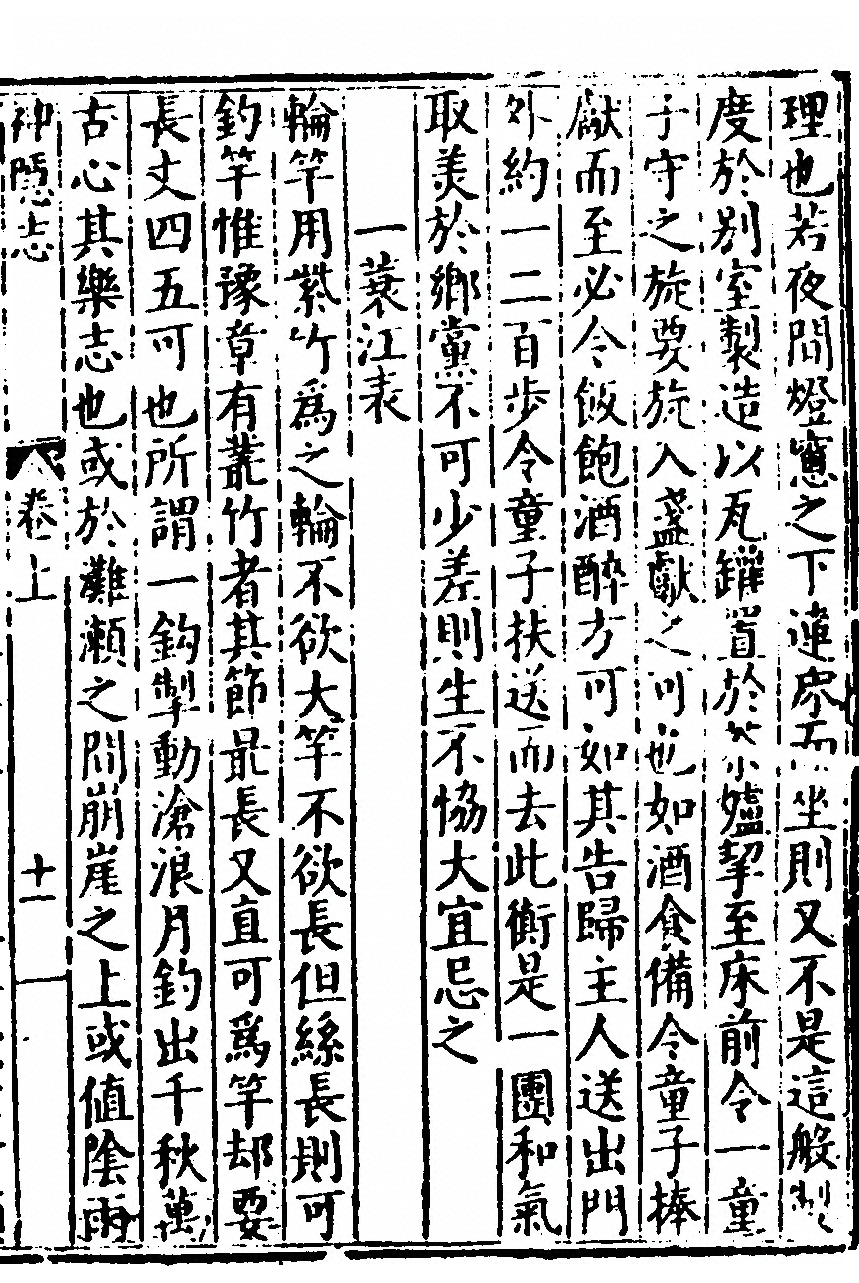 理也若夜間燈窻之下連席而坐則又不是這般製
度於別室製造以瓦罐置於茶爐挈至床前令一童
子守之旋要旋入盞獻之可也如酒食備令童子捧
獻而至必令飯飽酒醉方可如其告歸主人送出門
外約一二百步令童子扶送而去此衝是一團和氣
取美於鄉黨不可少差則生不恊大宜忌之
一蓑江表
輪竿用紫竹為之輪不欲大竿不欲長但絲長則可
釣竿惟豫章有叢竹者其節最長又直可為竿却要
長丈四五可也所謂一鈎掣動滄浪月釣出千秋萬
古心其樂志也或於灘瀨之間崩崖之上或値陰雨
神隱志
卷上
十一